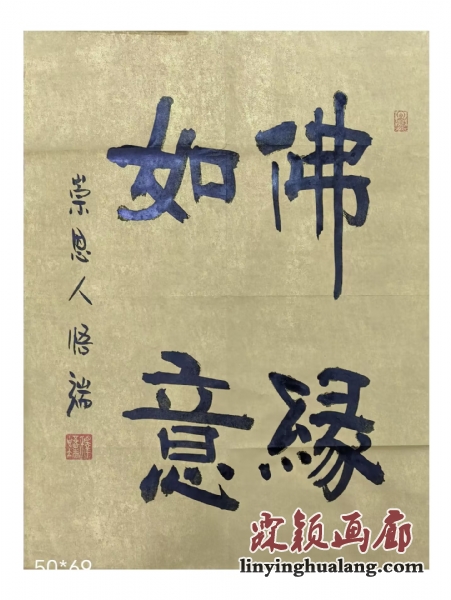 佛缘
如意
崇恩人悟端
50*69
霖颖画廊
linyinghualang.com